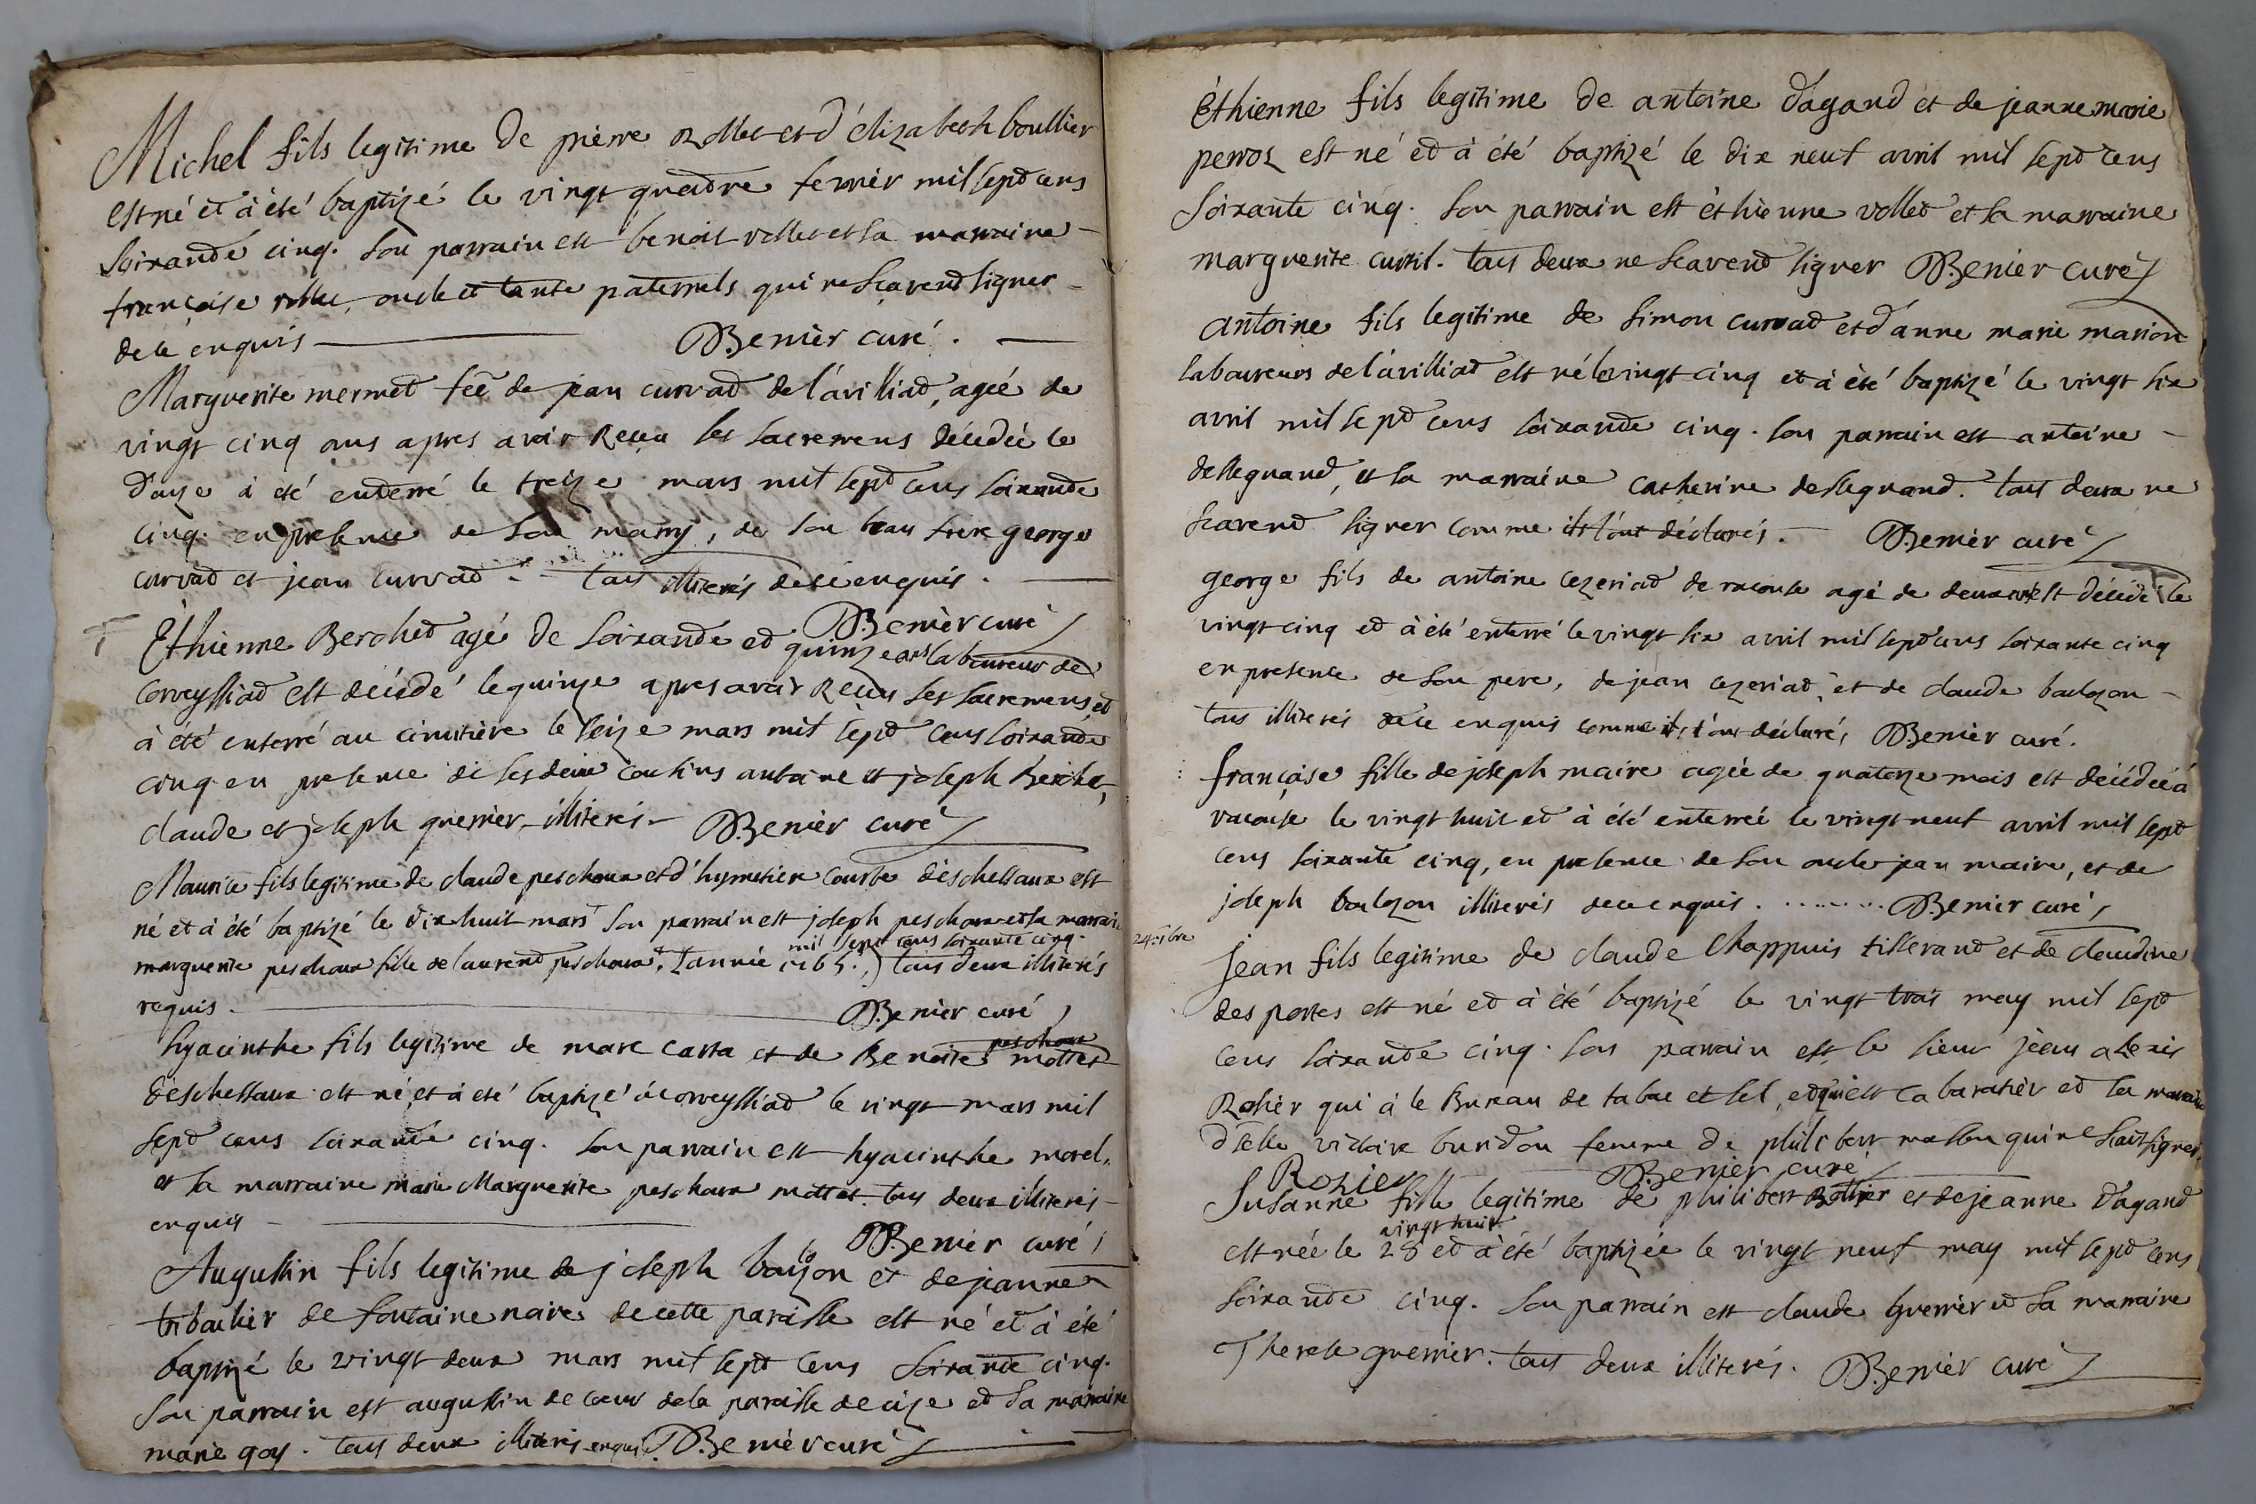 Michel fils legitime de pierre vollet et d'élizabeth boullier
est né et à été baptizé le vingt quadre fevrier mil sept cens
soixande cinq. son parrain est benoit vollet et sa marraine
françoise vollet, oncle et tante paternels qui ne sçavend signer
de ce enquis Benier curé.
Marguerite mermed fee de jean curvad de l'avilliad, ageé de
vingt cinq ans apres avoir reçeu les sacremens décedeé le
douze à été enderré le treize mars mil sept cens soixande
cinq. en presence de son marry, de son beau frere george
curvad et jean curvad. tous illiterés de ce enquis.
Benier curé
Èthienne Berched agé de soixande ed quinze ans laboureur de
corveyssiad est décédé le quinze apres avoir reçeu les sacremens, ed
à été enterré au cimitière le seize mars mil sept cens soixande
cinq en presence de ses deux cousins antoine et joseph Berche,
claude et joseph guerrier illiterés Benier curé
Maurice fils legitime de claude peschoux et d'hymetiere courbe d'eschessaux est
né et à été baptizé le dix huit mars son parrain est joseph peschoux et sa marrai
mil sept cens soixante cinq.
marguerite peschoux fille de laurend peschoux. L'année 1765. tous deux illiterés
requis. Benier curé
peschoux
hyacinthe fils legitime de marc carra et de Benoite mottet
d'eschessaux est né, et à été baptizé à corveyssiad le vingt mars mil
sept cens soixande cinq. son parrain est hyacinthe morel,
et sa marraine marie Marguerite peschoux mottet. tous deux illiterés
enquis Benier curé
Augustin fils legitime de joseph baulzon et de jeanne
tribouhier de fontaine noire de cette paroisse est né et à été
baptizé le vingt deux mars mil sept cens soixande cinq.
son parrain est augustin de coeur de la paroisse de cize ed sa marraine
marie goy. tous deux illiterés enquis. Benier curé
Èthienne fils legitime de antoine d'agand et de jeanne marie
perroz est né ed à été baptizé le dix neuf avril mil sept cens
soixante cinq. son parrain est èthienne volled et sa marraine
marguerite curtil. tous deux ne scavend signer Benier curé
antoine fils legitime de simon curvad et d'anne marie marion
laboureurs de l'avilliad est né le vingt cinq et à été baptizé le vingt six
avril mil sept cens soixande cinq. son parrain est antoine
dessegnand, et sa marraine catherine dessegnand. tous deux ne
scavend signer comme ils l'ont déclarés. Benier curé
george fils de antoine cezeriad de racouse agé de deux est décédé le
vingt cinq ed à été enterré le vingt six avril mil sept cens soixante cinq
en presence de son pere, de jean cezeriad, et de claude baulzon
tous illiterés de ce enquis comme ils l'ont déclaré, Benier curé.
françoise fille de joseph maire ageé de quatorze mois est décédeé à
racouse le vingt huit ed à été enterreé le vingt neuf avril mil sept
cens soixante cinq, en presence de son oncle jean maire, et de
joseph baulzon illiterés de ce enquis. Benier curé,
jean fils legitime de claude Chappuis tisserand et de claudine
des portes est né ed à été baptizé le vingt trois may mil sept
cens soixande cinq. son parrain est le sieur jean alexis
Rosier qui à le Bureau de tabac et sel, ed qui est cabaratier ed sa marraine
d'lle victoire buridon femme de philibert masson qui ne scait signer.
Rosier Benier curé
Susanne fille legitime de philibert et de jeanne d'agand
vingt huit
est née le 28 ed à été baptizée le vingt neuf may mil sept cens
soixande cinq. son parrain est claude guerrier ed sa marraine
Therese guerrier. tous deux illiterés. Benier curé